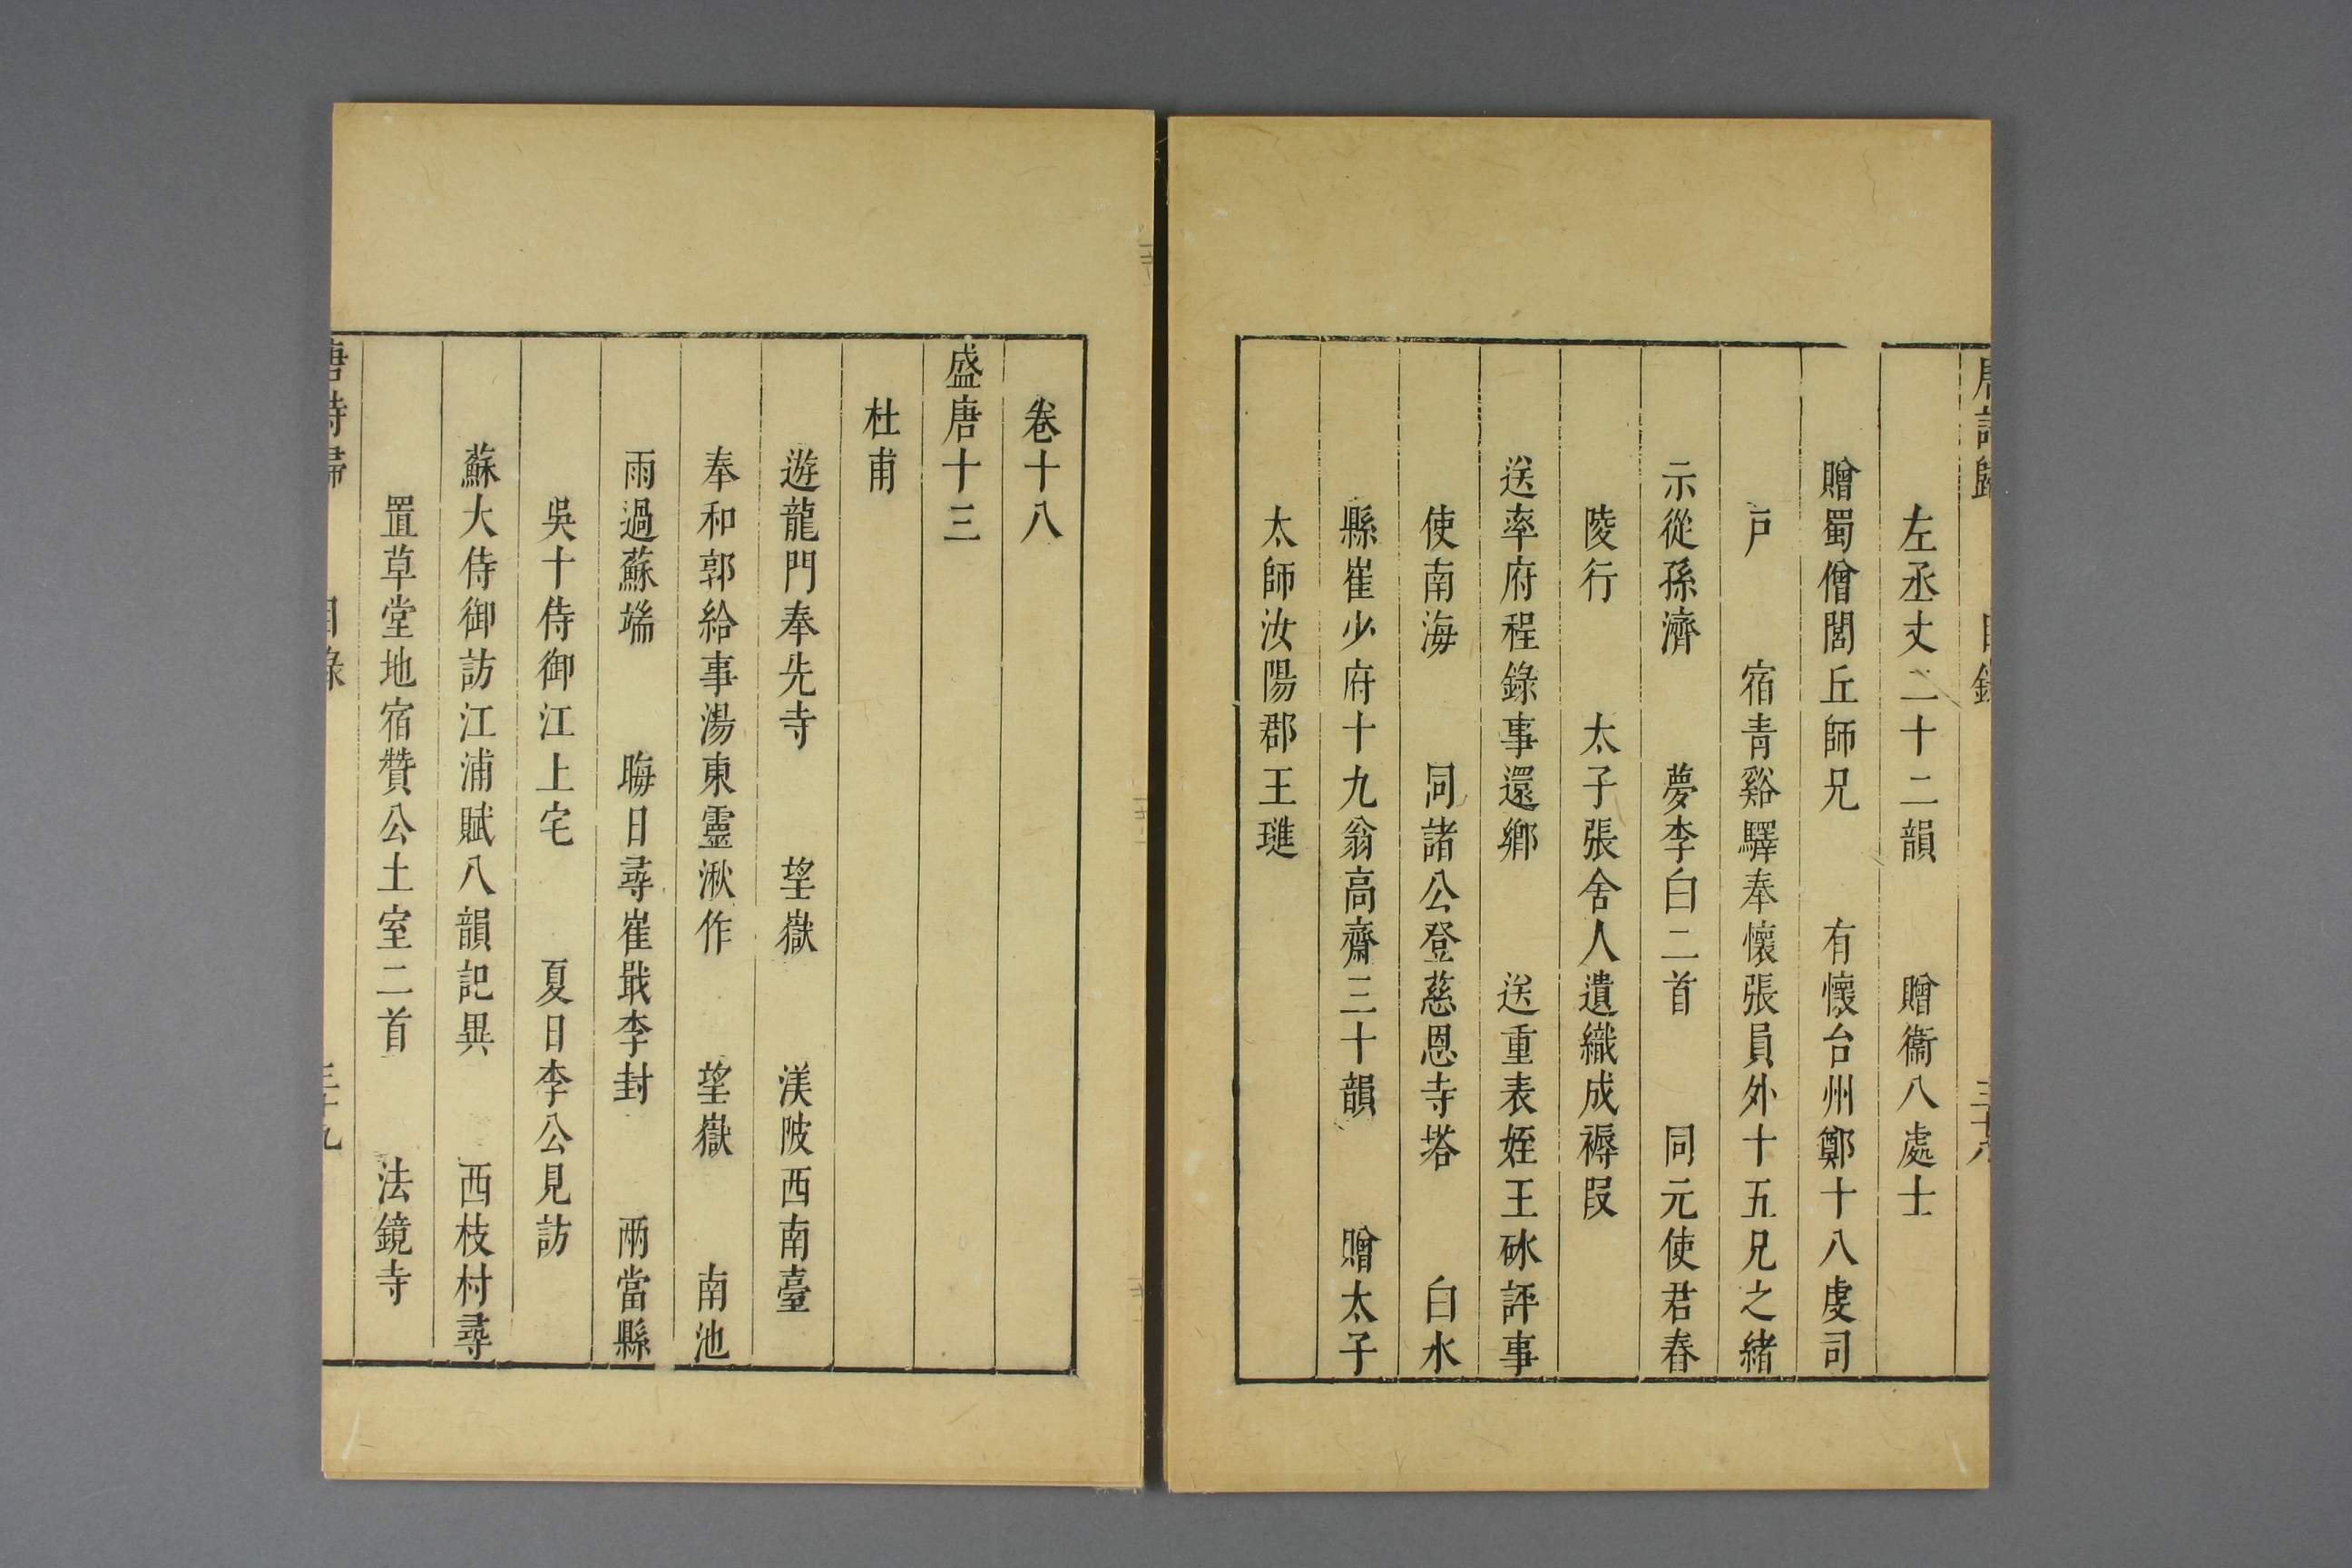 唐詩歸 目錄 三十八
左丞丈二十二韻 贈衞八處士
贈蜀僧閭丘師兄 有懷台州鄭十八虔司
戶 宿青谿驛奉懷張員外十五兄之緒
示從孫濟 夢李白二首 同元使君舂
陵行 太子張舍人遺織成褥段
送率府程錄事還鄉 送重表姪王砅評事
使南海 同諸公登慈恩寺塔 白水
縣崔少府十九翁高齋三十韻 贈太子
太師汝陽郡王璡
卷十八
盛唐十三
杜甫
遊龍門奉先寺 望嶽 渼陂西南臺
奉和郭給事湯東靈湫作 望嶽 南池
雨過蘇端 晦日尋崔戢李封 兩當縣
吳十侍御江上宅 夏日李公見訪
蘇大侍御訪江浦賦八韻記異 西枝村尋
置草堂地宿贊公土室二首 法鏡寺
唐詩歸 目錄 三十九